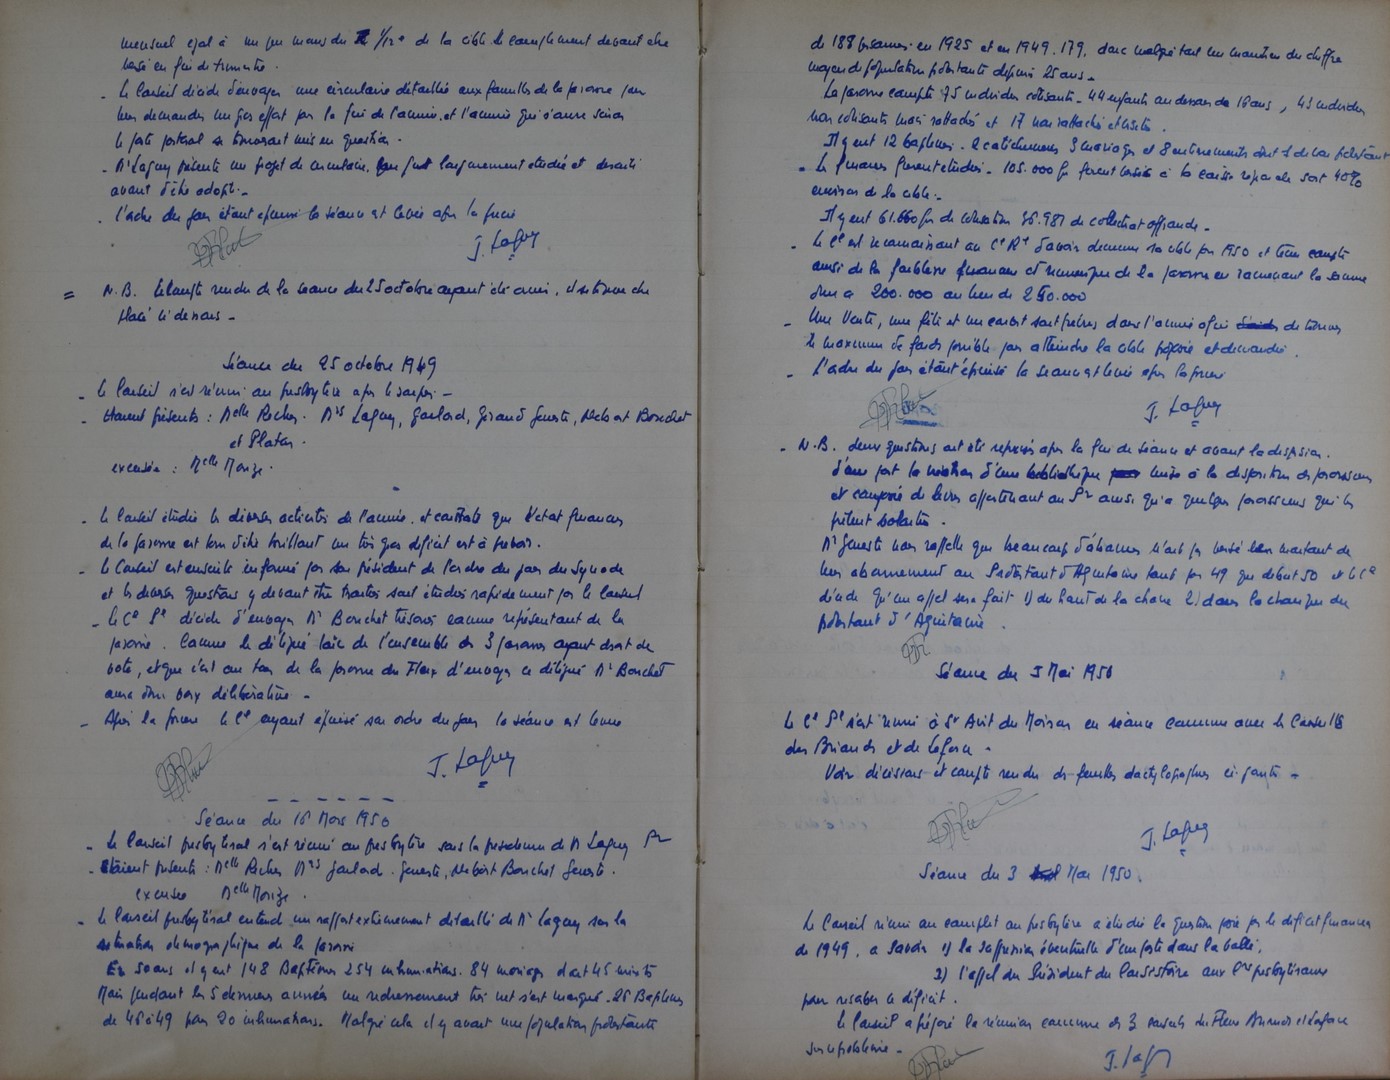 mensuel égal à un peu moins du 1/12e de la cible le complément devant être
versé en fin de trimestre.
- Le Conseil décide d'envoyer une circulaire détaillée aux familles de la paroisse pour
leur demander un gros effort pour la fin de l'année, et l'année qui s'ouvre sinon
le poste pastoral se trouvant mis en question.
- Mr Laguy présente un projet de circulaire, qui fut longuement étudié et discuté
avant d'être adopté.-
- L'ordre du jour étant épuisé la séance est levée après la prière
J. Laguy
= N.B. Le compte rendu de la séance du 25 octobre ayant été omis, il se trouve
placé ci dessous -
Séance du 25 octobre 1949
- Le Conseil s'est réuni au presbytère après le souper -
- Étaient présents : Melle Rocher. Mrs Laguy, Goulard, Giraud Geneste, Bouchet
et Platon.
excusée : Melle Monge.
- Le Conseil étudie les diverses activités de l'année, et constate que l'état financier
de la paroisse est loin d'être brillant un très gros déficit est à prévoir.
- Le Conseil est ensuite informé par son président de l'ordre du jour du Synode
et les diverses questions y devant être traitées sont étudiées rapidement par le Conseil
- Le Cl Pl décide d'envoyer Mr Bouchet trésorier comme représentant de la
paroisse. Comme le délégué laïc de l'ensemble des 3 paroisses ayant droit de
vote, et que c'est au tour de la paroisse du Fleix d'envoyer ce délégué Mr Bouchet
aura donc voix délibérative -
- Après la prière le Cl ayant épuisé son ordre du jour la séance est levée
J. Laguy
Séance du 16 Mars 1950
- Le Conseil presbytéral s'est réuni au presbytère sous la présidence de Mr Laguy Pr
- Étaient présents : Melle Rocher Mrs Goulard. Geneste, Bouchet Geneste.
excusée Melle Monge.
- Le Conseil presbytéral entend un rapport extrêmement détaillé de Mr Laguy sur la
situation démographique de la paroisse
En 50 ans il y eut 148 Baptêmes 254 inhumations. 84 mariages dont 45 mixtes
Mais pendant les 5 dernières années un redressement très net s'est marqué. 26 Baptêmes
de 45 à 49 pour 20 inhumations. Malgré cela il y avait une population protestante
de 188 personnes en 1925 et en 1949. 179, donc malgré tout un maintien du chiffre
moyen de population protestante depuis 25 ans -
La paroisse compte 75 individus cotisants - 44 enfants au dessous de 16 ans, 43 individus
non cotisants mais rattachés et 17 non rattachés et visités.
Il y eut 12 baptêmes. 2 catéchumènes 3 mariages et 8 enterrements dont 1 de non protestant
- Les finances furent étudiées - 105.000 frs furent versés à la caisse régionale soit 40%
environ de la cible.-
Il y eut 61.660 frs de cotisation 36.987 de collectes et offrandes -
- Le Cl est reconnaissant au Cl Rl d'avoir diminué sa cible pour 1950 et tenu compte
ainsi de la faiblesse financière et numérique de la paroisse en ramenant la somme
due à 200.000 au lieu de 250.000
- Une Vente, une fête et un concert sont prévus dans l'année afin de trouver
le maximum de fonds possible pour atteindre la cible proposée et demandée.
- L'ordre du jour étant épuisé la séance est levée après la prière
J. Laguy
- N.B. deux questions ont été reposées après la fin de séance et avant la dispersion.
d'une part la création d'une bibliothèque mise à la disposition des paroissiens
et composée de livres appartenant au Pr ainsi qu'à quelques paroissiens qui les
prêtent volontiers.
Mr Geneste nous rappelle que beaucoup d'abonnés n'ont pas versé le montant de
leur abonnement au Protestant d'Aquitaine tant pour 49 que début 50 et le Cl
décide qu'un appel sera fait 1) du haut de la chaire 2) dans la chronique du
protestant d'Aquitaine.
Séance du 5 Mai 1950
Le Cl Pl s'est réuni à St Avit du Moiron en séance commune avec les Conseils
des Briands et de Laforce -
Voir décisions et compte rendu des feuilles dactylographiées ci-jointes -
J. Laguy
Séance du 3 Mai 1950.
Le Conseil réuni au complet au presbytère a étudié la question posée par le déficit financier
de 1949, a savoir 1) la suppression éventuelle d'un poste dans la vallée,
2) l'appel du Président du Consistoire aux Cers presbytéraux
pour résorber ce déficit.
Le Conseil a préparé la réunion commune des 3 conseils du Fleix Briands et Laforce
sur ce problème -
J. Laguy